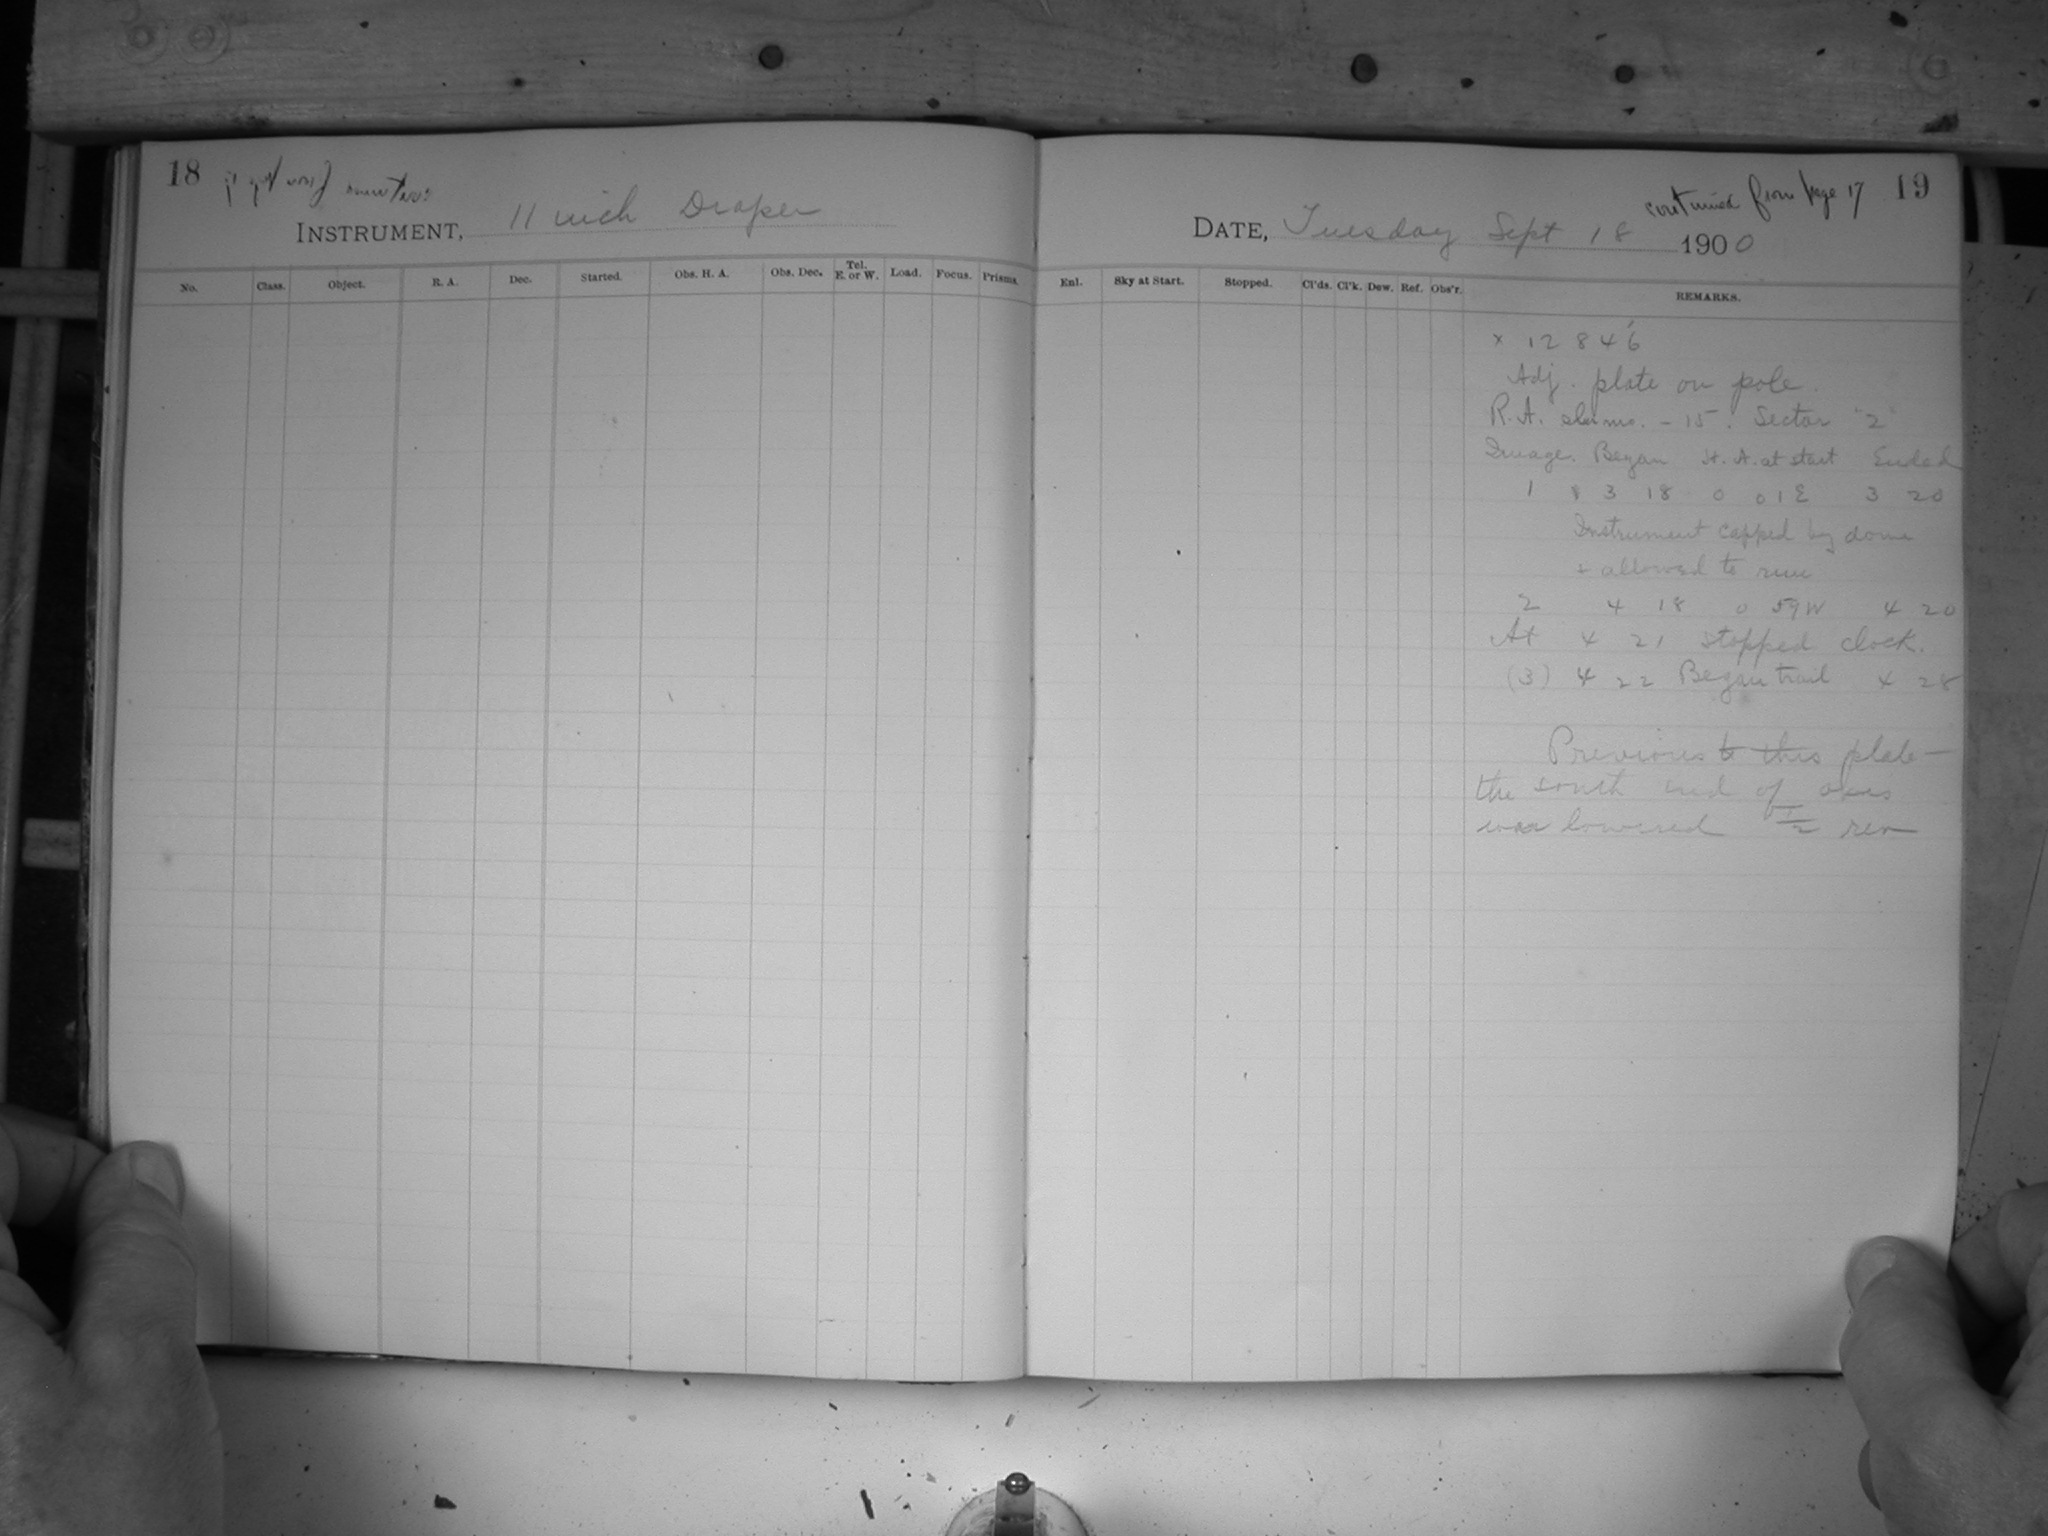 18
INSTRUMENT, 11 inch Draper
No. Class. Object. R. A. Dec. Started. Obs. H. A. Obs. Dec. Tel. E. or W. Load. Focus. Prisms.
continued from page 17 19
DATE, Tuesday Sept 18 1900
Enl. Sky at Start. Stopped. Cl'ds. Cl'k. Dew. Ref. Obs'r. REMARKS.
x 12846
Adj. plate on pole.
R.A. - 15. Sector "2"
Image. Began H.A. at start Ended
1 3 18 0 01E 3 20
Instrument capped by dome
+ allowed to run
2 4 18 0 59W 4 20
At 4 21 stopped clock.
(3) 4 22 Began trail 4 28
Previous to this plate
the south end of axis
was lowered 1/2 rev